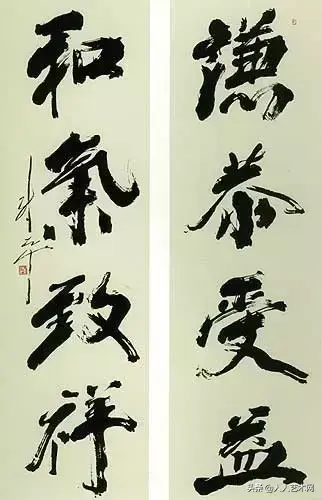 謙恭受益
和氣致祥
头条 @人人艺术网